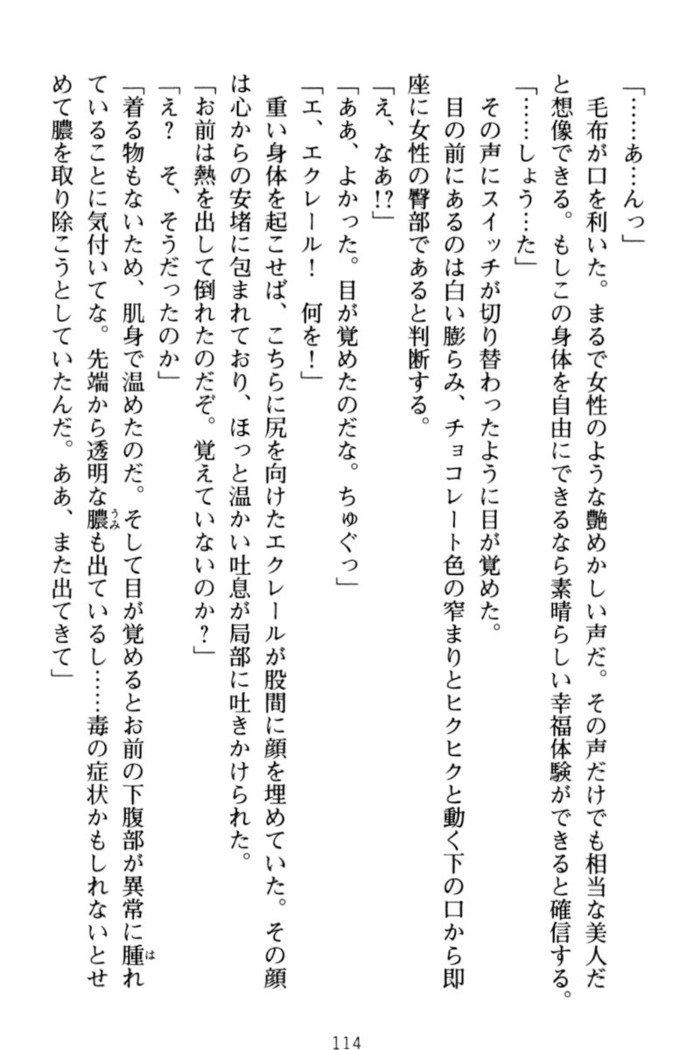 「……あ…んっ」
　毛布が口を利いた。まるで女性のような艶めかしい声だ。その声だけでも相当な美人だ
と想像できる。もしこの身体を自由にできるなら素晴らしい幸福体験ができると確信する。
「……しょう…た」
　その声にスイッチが切り替わったように目が覚めた。
　目の前にあるのは白い膨らみ、チョコレート色の窄まりとヒクヒクと動く下の口から即
座に女性の臀部であると判断する。
「え、なあ!?」
「ああ、よかった。目が覚めたのだな。ちゅぐっ」
「エ、エクレール！　何を！」
　重い身体を起こせば、こちらに尻を向けたエクレールが股間に顔を埋めていた。その顔
は心からの安堵に包まれており、ほっと温かい吐息が局部に吐きかけられた。
「お前は熱を出して倒れたのだぞ。覚えていないのか？」
「え？　そ、そうだったのか」
「着る物もないため、肌身で温めたのだ。そして目が覚めるとお前の下腹部が異常に腫れ
ていることに気付いてな。先端から透明な膿も出ているし……毒の症状かもしれないとせ
めて膿を取り除こうとしていたんだ。ああ、また出てきて」
114